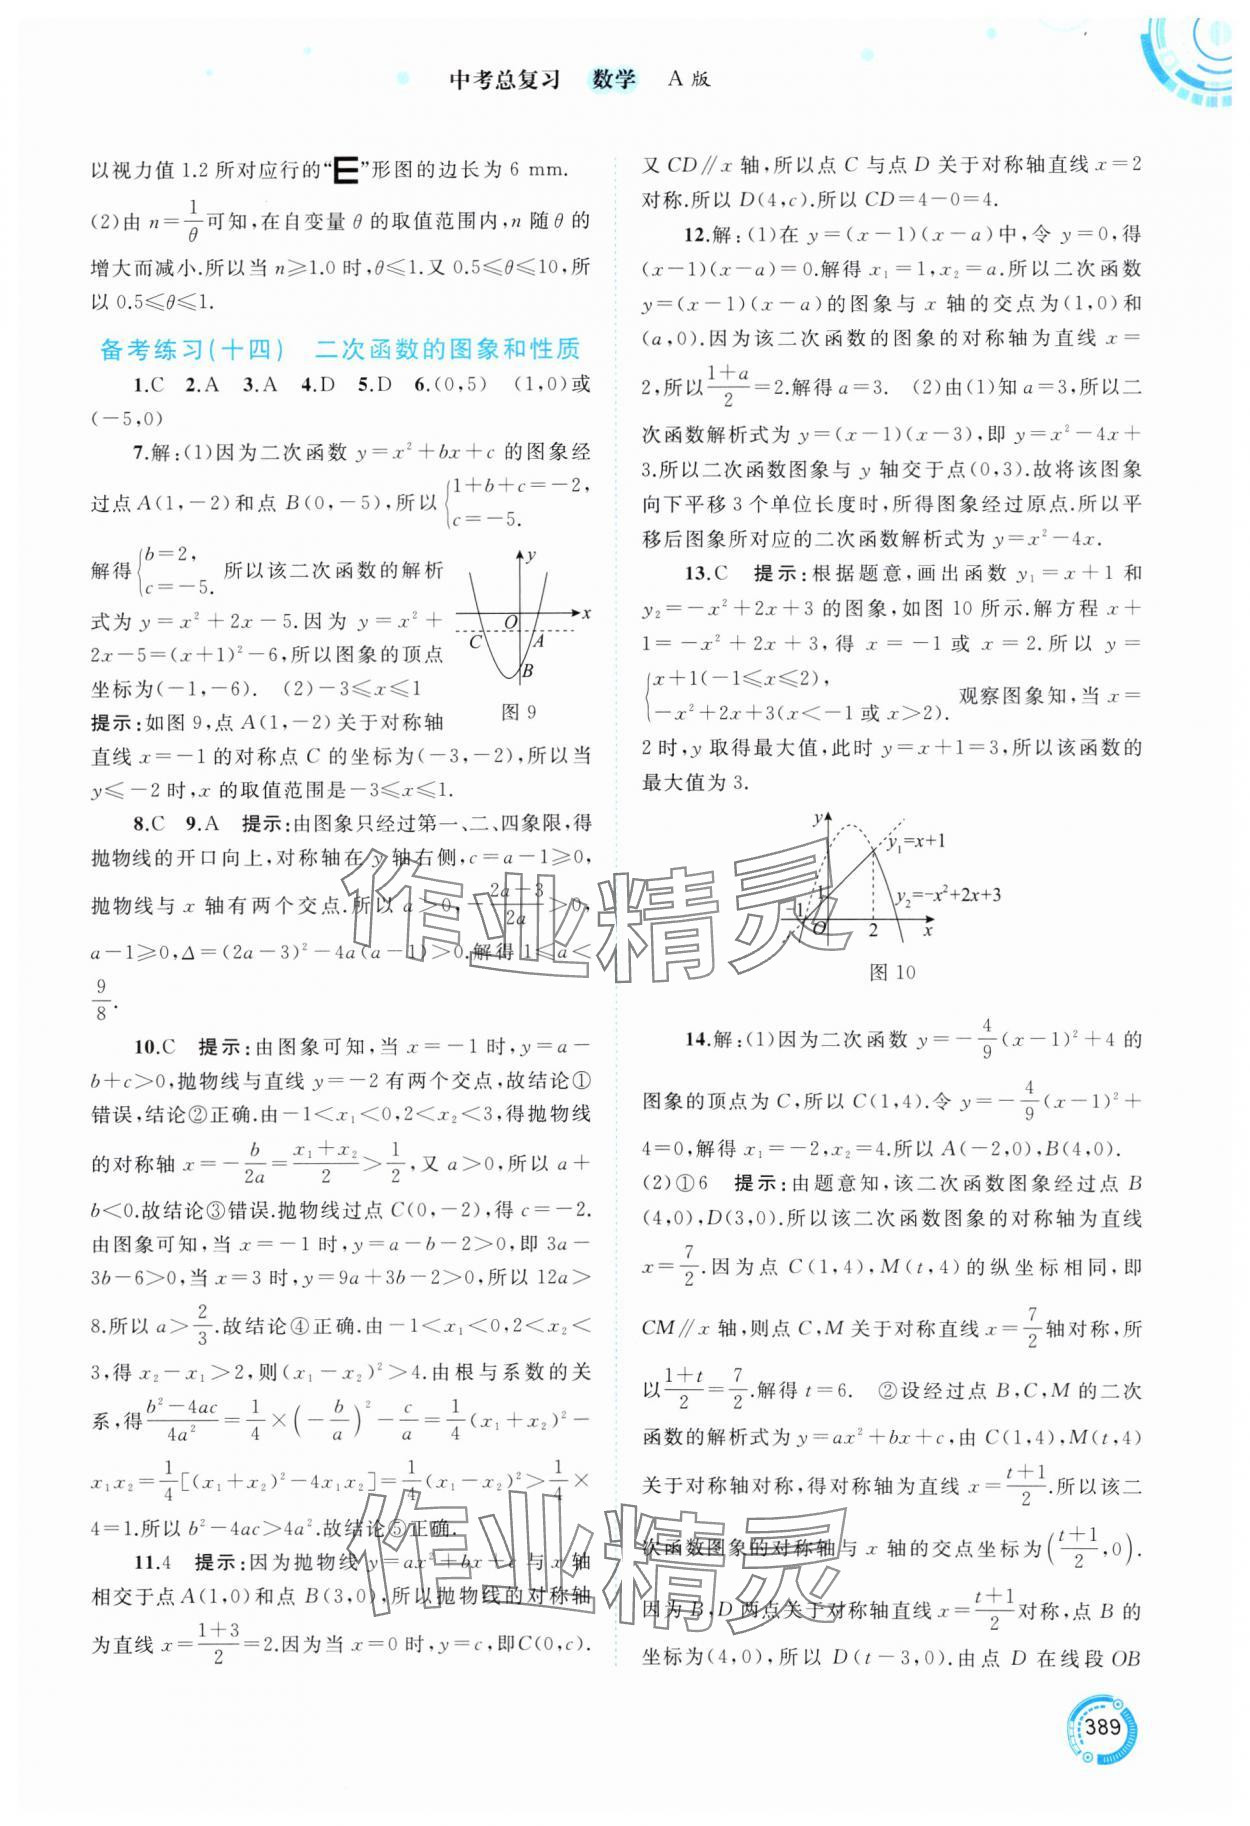 中考总复习 数学 A 版
以视力值 1.2 所对应行的“E”形图的边长为 6 mm.
(2)由 n=1/θ可知,在自变量 θ 的取值范围内,n 随θ 的
增大而减小.所以当 n≥1.0 时,θ≤1.又 0.5≤θ≤10,所
以 0.5≤θ≤1.
备考练习(十四) 二次函数的图象和性质
1.C 2.A 3.A 4.D 5.D 6.(0,5) (1,0)或
(-5,0)
7.解:(1)因为二次函数 y=x²+bx+c 的图象经
过点 A(1,-2)和点 B(0,-5),所以{1+b+c=-2, c=-5.
解得{b=2, c=-5. 所以该二次函数的解析
式为 y=x²+2x-5.因为 y=x²+
2x-5=(x+1)²-6,所以图象的顶点
坐标为(-1,-6). (2)-3≤x≤1
y
O
x
C
A
B
图 9
提示:如图 9,点 A(1,-2)关于对称轴
直线 x=-1 的对称点 C 的坐标为(-3,-2),所以当
y≤-2 时,x 的取值范围是-3≤x≤1.
8.C 9.A 提示:由图象只经过第一、二、四象限,得
抛物线的开口向上,对称轴在 y 轴右侧,c=a-1≥0,
抛物线与 x 轴有两个交点.所以 a>0,-(2a-3)/2a>0,
a-1≥0,Δ=(2a-3)²-4a(a-1)>0.解得 1≤a<
9/8.
10.C 提示:由图象可知,当 x=-1 时,y=a-
b+c>0,抛物线与直线 y=-2 有两个交点,故结论①
错误,结论②正确.由-1<x₁<0,2<x₂<3,得抛物线
的对称轴 x=-b/2a=(x₁+x₂)/2>1/2,又 a>0,所以 a+
b<0.故结论③错误.抛物线过点 C(0,-2),得 c=-2.
由图象可知,当 x=-1 时,y=a-b-2>0,即 3a-
3b-6>0,当 x=3 时,y=9a+3b-2>0,所以 12a>
8.所以 a>2/3.故结论④正确.由-1<x₁<0,2<x₂<
3,得 x₂-x₁>2,则(x₁-x₂)²>4.由根与系数的关
系,得(b²-4ac)/4a²=1/4×(-b/a)²-c/a=1/4(x₁+x₂)²-
x₁x₂=1/4[(x₁+x₂)²-4x₁x₂]=1/4(x₁-x₂)²>1/4×
4=1.所以 b²-4ac>4a².故结论⑤正确.
11.4 提示:因为抛物线 y=ax²+bx-c 与 x 轴
相交于点 A(1,0)和点 B(3,0),所以抛物线的对称轴
为直线 x=(1+3)/2=2.因为当 x=0 时,y=c,即C(0,c).
又 CD∥x 轴,所以点 C 与点 D 关于对称轴直线 x=2
对称.所以 D(4,c).所以 CD=4-0=4.
12.解:(1)在 y=(x-1)(x-a)中,令 y=0,得
(x-1)(x-a)=0.解得 x₁=1,x₂=a.所以二次函数
y=(x-1)(x-a)的图象与 x 轴的交点为(1,0)和
(a,0).因为该二次函数的图象的对称轴为直线 x=
2,所以(1+a)/2=2.解得 a=3. (2)由(1)知 a=3,所以二
次函数解析式为 y=(x-1)(x-3),即 y=x²-4x+
3.所以二次函数图象与 y 轴交于点(0,3).故将该图象
向下平移 3 个单位长度时,所得图象经过原点.所以平
移后图象所对应的二次函数解析式为 y=x²-4x.
13.C 提示:根据题意,画出函数 y₁=x+1 和
y₂=-x²+2x+3 的图象,如图 10 所示.解方程 x+
1=-x²+2x+3,得 x=-1 或 x=2.所以 y=
{x+1(-1≤x≤2), -x²+2x+3(x<-1 或 x>2). 观察图象知,当 x=
2 时,y 取得最大值,此时 y=x+1=3,所以该函数的
最大值为 3.
y
y₁=x+1
1
y₂=-x²+2x+3
-1
O
2
x
图 10
14.解:(1)因为二次函数 y=-4/9(x-1)²+4 的
图象的顶点为 C,所以 C(1,4).令 y=-4/9(x-1)²+
4=0,解得 x₁=-2,x₂=4.所以 A(-2,0),B(4,0).
(2)①6 提示:由题意知,该二次函数图象经过点 B
(4,0),D(3,0).所以该二次函数图象的对称轴为直线
x=7/2.因为点 C(1,4),M(t,4)的纵坐标相同,即
CM∥x 轴,则点 C,M 关于对称直线 x=7/2轴对称,所
以(1+t)/2=7/2.解得 t=6. ②设经过点 B,C,M 的二次
函数的解析式为 y=ax²+bx+c,由 C(1,4),M(t,4)
关于对称轴对称,得对称轴为直线 x=(t+1)/2.所以该二
次函数图象的对称轴与 x 轴的交点坐标为((t+1)/2,0).
因为 B,D 两点关于对称轴直线 x=(t+1)/2对称,点 B 的
坐标为(4,0),所以 D(t-3,0).由点 D 在线段 OB
389
作业精灵
作业精灵